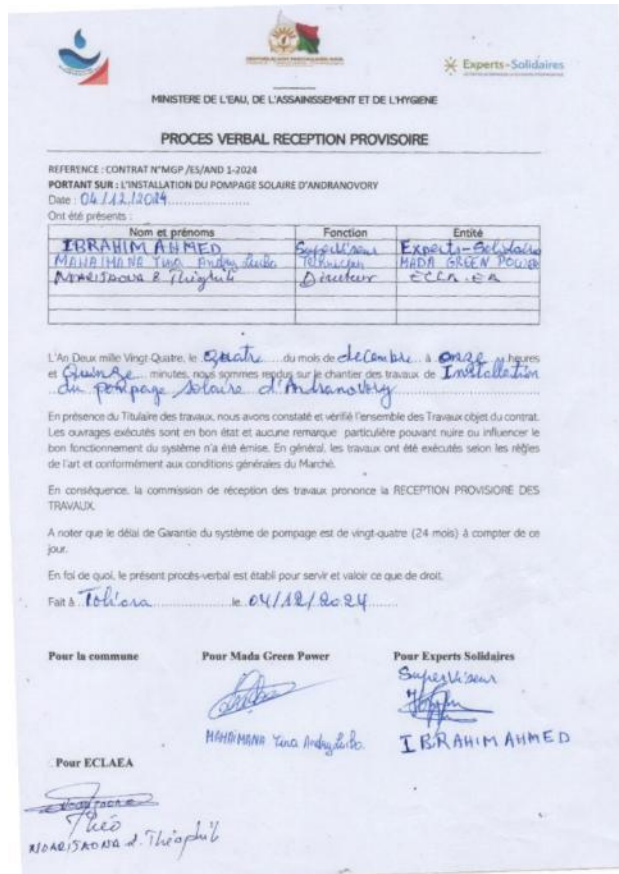 Experts-Solidaires
MINISTERE DE L'EAU, DE L'ASSAINISSEMENT ET DE L'HYGIENE
PROCES VERBAL RECEPTION PROVISOIRE
REFERENCE : CONTRAT N°MGP /ES/AND 1-2024
PORTANT SUR : L'INSTALLATION DU POMPAGE SOLAIRE D'ANDRANOVORY
Date : 04/12/2024
Ont été présents :
Nom et prénoms Fonction Entité
IBRAHIM AHMED Superviseur Experts-Solidaires
MAHAIMANA Yino Andry Technicien MADA GREEN POWER
NOARISAONA Directeur
L'An Deux mille Vingt-Quatre, le Quatre du mois de décembre à onze heures
et Quinze minutes, nous sommes rendus sur le chantier des travaux de Installation
du pompage solaire d'Andranovory
En présence du Titulaire des travaux, nous avons constaté et vérifié l'ensemble des Travaux objet du contrat.
Les ouvrages exécutés sont en bon état et aucune remarque particulière pouvant nuire ou influencer le
bon fonctionnement du système n'a été émise. En général, les travaux ont été exécutés selon les règles
de l'art et conformément aux conditions générales du Marché.
En conséquence, la commission de réception des travaux prononce la RECEPTION PROVISIORE DES
TRAVAUX.
A noter que le délai de Garantie du système de pompage est de vingt-quatre (24 mois) à compter de ce
jour.
En foi de quoi, le présent procès-verbal est établi pour servir et valoir ce que de droit.
Fait à Toliara le 04/12/2024
Pour la commune Pour Mada Green Power Pour Experts Solidaires
Superviseur
MAHAIMANA Yino Andry IBRAHIM AHMED
Pour ECLAEA
Théo
NOARISAONA